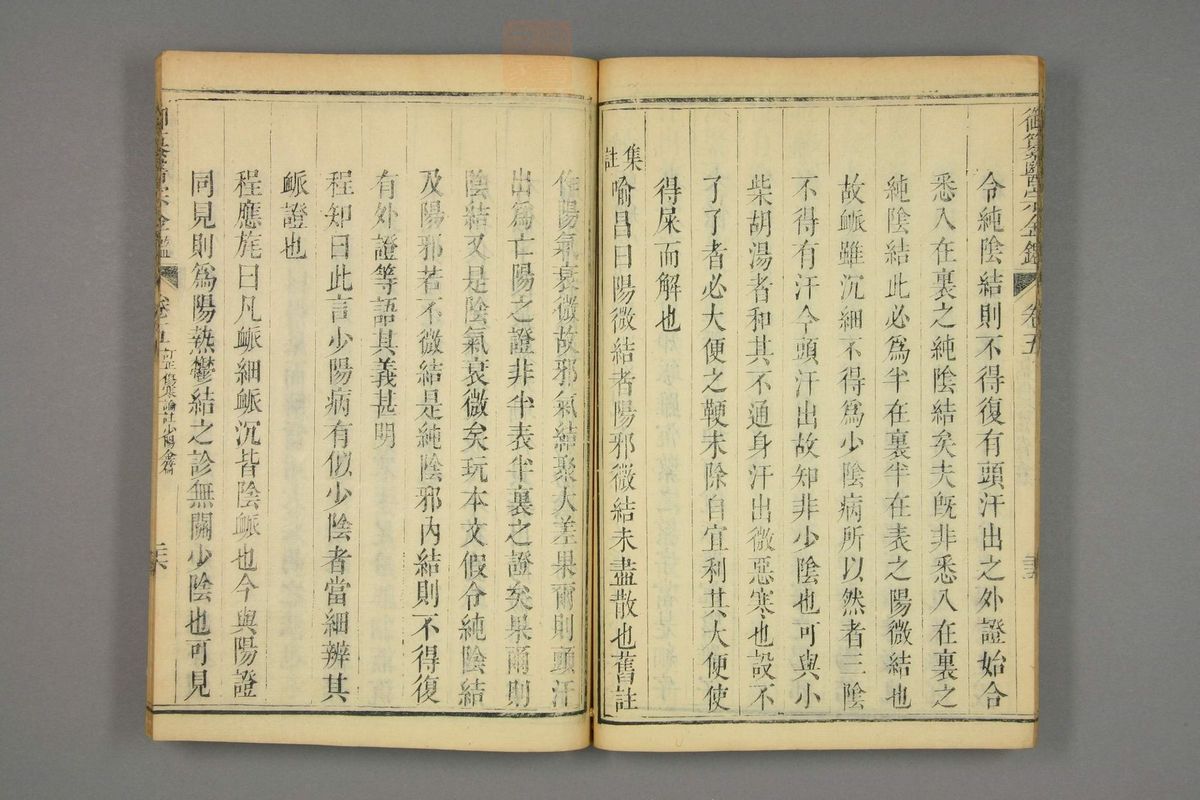 御纂醫宗金鑑 卷五
令純陰結則不得復有頭汗出之外證始合
悉入在裏之純陰結矣夫旣非悉入在裏之
純陰結此必爲半在裏半在表之陽微結也
故脈雖沉細不得爲少陰病所以然者三陰
不得有汗今頭汗出故知非少陰也可與小
柴胡湯者和其不通身汗出微惡寒也設不
了了者必大便之鞕未除自宜利其大便使
得屎而解也
集註喻昌曰陽微結者陽邪微結未盡散也舊註
作陽氣衰微故邪氣結聚大差果爾則頭汗
出爲亡陽之證非半表半裏之證矣果爾則
陰結又是陰氣衰微矣玩本文假令純陰結
及陽邪若不微結是純陰邪內結則不得復
有外證等語其義甚明
程知曰此言少陽病有似少陰者當細辨其
脈證也
程應旄曰凡脈細脈沉皆陰脈也今與陽證
同見則爲陽熱鬱結之診無關少陰也可見
卷五 訂正傷寒論註少陽全篇